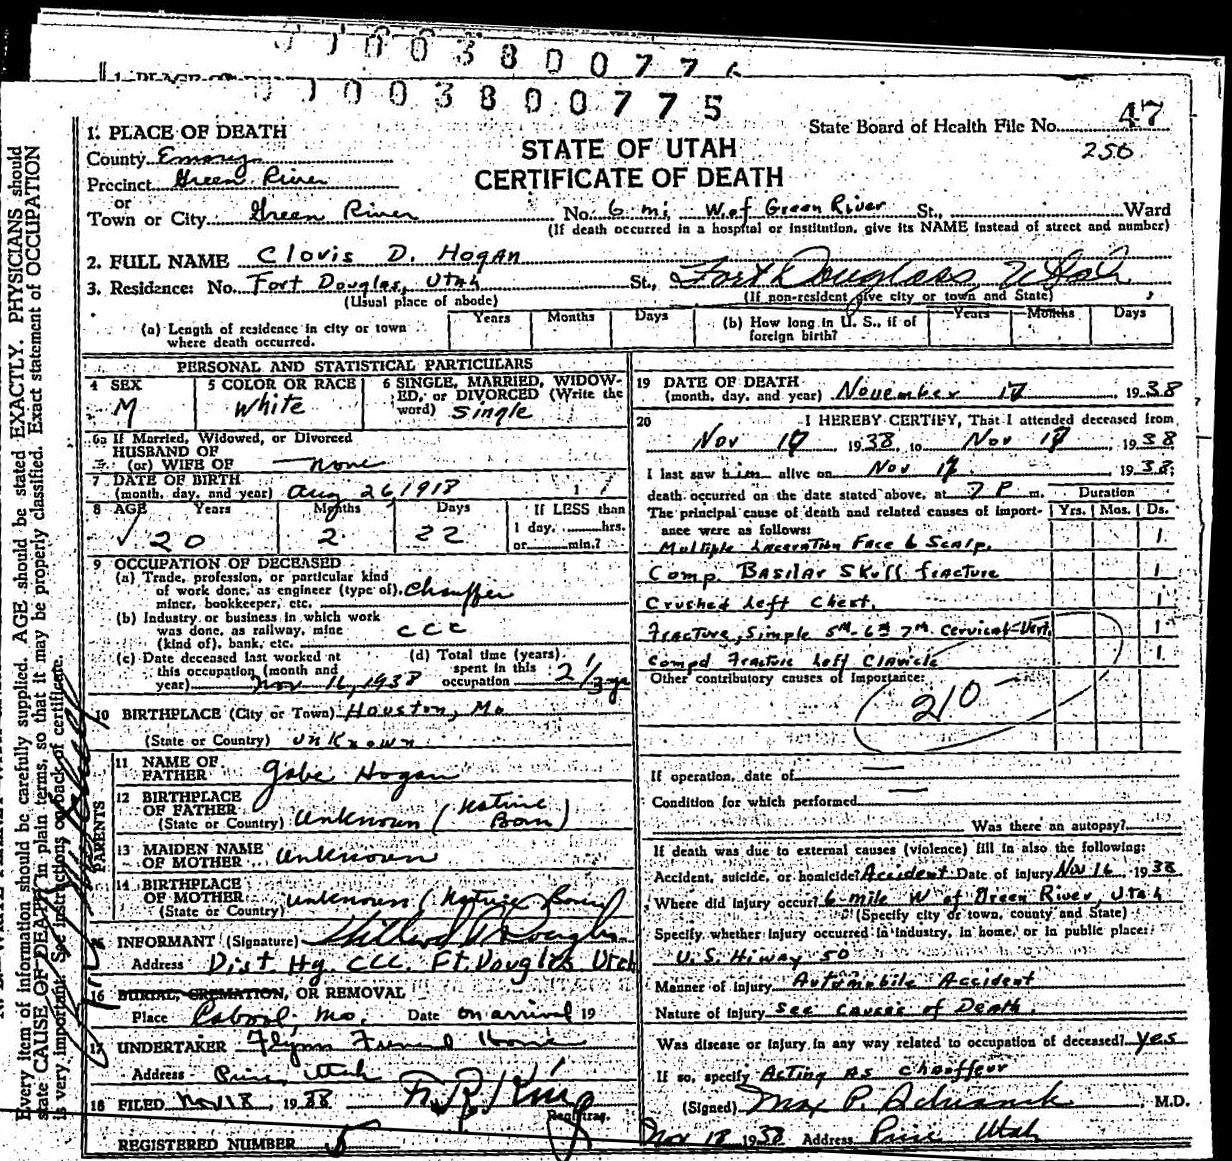 7 7
1. PLACE OF
3 8 0 0 7 7 5
1. PLACE OF DEATH
State Board of Health File No. 47
County Emery
STATE OF UTAH
250
Precinct Green River
CERTIFICATE OF DEATH
or
Town or City Green River No. 6 mi W. of Green River St., Ward
(If death occurred in a hospital or institution, give its NAME instead of street and number)
2. FULL NAME Clovis D. Hogan
3. Residence: No. Fort Douglas, Utah St., Fort Douglass, Utah
(Usual place of abode) (If non-resident give city or town and State)
(a) Length of residence in city or town where death occurred. Years Months Days (b) How long in U. S., if of foreign birth? Years Months Days
PERSONAL AND STATISTICAL PARTICULARS
4 SEX M
5 COLOR OR RACE White
6 SINGLE, MARRIED, WIDOW-
ED, or DIVORCED (Write the
word) Single
6a If Married, Widowed, or Divorced
HUSBAND OF
(or) WIFE OF none
7 DATE OF BIRTH
(month, day, and year) Aug 26, 1918
8 AGE Years Months Days If LESS than
20 2 22 1 day, hrs.
or min.?
9 OCCUPATION OF DECEASED
(a) Trade, profession, or particular kind
of work done, as engineer (type of), Chauffer
miner, bookkeeper, etc.
(b) Industry or business in which work
was done, as railway, mine CCC
(kind of), bank, etc.
(c) Date deceased last worked at
this occupation (month and
year) Nov 16, 1938
(d) Total time (years)
spent in this
occupation 2 1/3 yr
10 BIRTHPLACE (City or Town) Houston, Mo
(State or Country) unknown
PARENTS
11 NAME OF
FATHER Gabe Hogan
12 BIRTHPLACE
OF FATHER
(State or Country) Unknown (Native Born)
13 MAIDEN NAME
OF MOTHER Unknown
14 BIRTHPLACE
OF MOTHER
(State or Country) Unknown (Native Born)
15 INFORMANT (Signature)
Address Dist. Hq. CCC. Ft. Douglas Utah
16 BURIAL, CREMATION, OR REMOVAL
Place Mo. Date on arrival 19
17 UNDERTAKER Flynn Funeral Home
Address Price, Utah
18 FILED Nov 18, 1938
Registrar.
REGISTERED NUMBER 5
19 DATE OF DEATH
(month, day, and year) November 17 1938
20 I HEREBY CERTIFY, That I attended deceased from
Nov 17 1938, to Nov 17 1938
I last saw him alive on Nov 17 1938
death occurred on the date stated above, at 7 P m. Duration
The principal cause of death and related causes of import-
ance were as follows: Yrs. Mos. Ds.
Multiple Laceration Face & Scalp. 1
Comp. Basilar Skull fracture 1
Crushed Left Chest. 1
Fracture, Simple 5th - 6th 7th Cervical-Vert. 1
Compd Fracture Left Clavicle 1
Other contributory causes of importance:
210
If operation, date of
Condition for which performed
Was there an autopsy?
If death was due to external causes (violence) fill in also the following:
Accident, suicide, or homicide? Accident Date of injury Nov 16, 1938
Where did injury occur? 6 mile W of Green River, Utah
(Specify city or town, county and State)
Specify whether injury occurred in industry, in home, or in public place:
U.S. Hiway 50
Manner of injury Automobile Accident
Nature of injury See causes of Death.
Was disease or injury in any way related to occupation of deceased? Yes
If so, specify Acting as chauffeur
(Signed) Max P. M.D.
Nov 18 1938 Address Price Utah
Every item of information should be carefully supplied. AGE should be stated EXACTLY. PHYSICIANS should
state CAUSE OF DEATH in plain terms, so that it may be properly classified. Exact statement of OCCUPATION
is very important. See instructions on back of certificate.